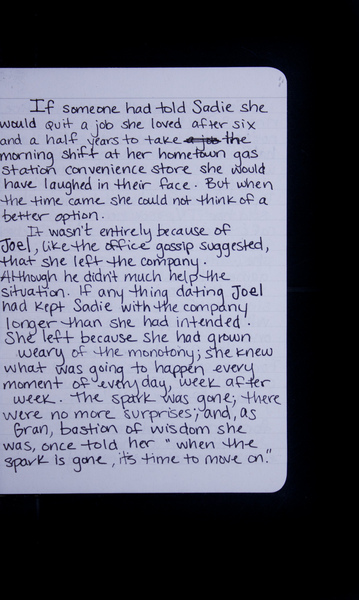 If someone had told Sadie she
would quit a job she loved after six
and a half years to take a job the
morning shift at her hometown gas
station convenience store she would
have laughed in their face. But when
the time came she could not think of a
better option.
It wasn't entirely because of
Joel, like the office gossip suggested,
that she left the company.
Although he didn't much help the
situation. If any thing dating Joel
had kept Sadie with the company
longer than she had intended.
She left because she had grown
weary of the monotony; she knew
what was going to happen every
moment of everyday, week after
week. The spark was gone; there
were no more surprises; and, as
Gran, bastion of wisdom she
was, once told her "when the
spark is gone, it's time to move on."